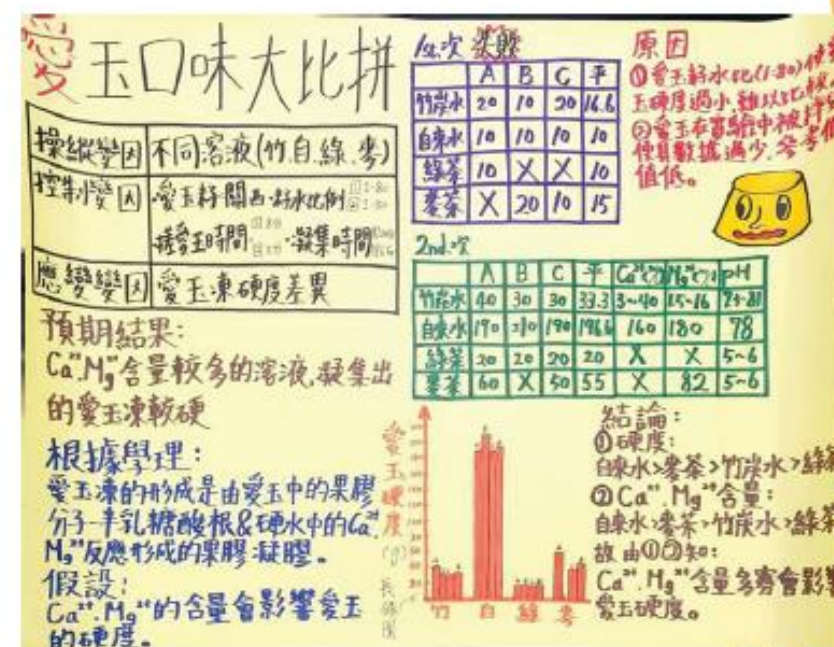 愛玉口味大比拼
操縱變因 不同溶液(竹.自.綠.麥)
控制變因 愛玉籽關西.籽水比例
搓愛玉時間 .凝集時間
應變變因 愛玉凍硬度差異
預期結果:
Ca²⁺.Mg²⁺含量較多的溶液,凝集出
的愛玉凍較硬
根據學理:
愛玉凍的形成是由愛玉中的果膠
分子-半乳糖醛酸根&硬水中的Ca²⁺.
Mg²⁺反應形成的果膠凝膠。
假設:
Ca²⁺.Mg²⁺的含量會影響愛玉
的硬度。
1st.次 實驗
A B C 平
竹炭水 20 10 20 16.6
自來水 10 10 10 10
綠茶 10 X X 10
麥茶 X 20 10 15
原因
①愛玉籽水比(1:80)使愛
玉硬度過小,難以比較
②愛玉在實驗中被
使其數據過少,參考價
值低。
2nd.次
A B C 平 Ca²⁺ Mg²⁺ pH
竹炭水 40 30 30 33.3 3~40 15~16
自來水 190 210 190 196.6 160 180 78
綠茶 20 20 20 20 X X 5~6
麥茶 60 X 50 55 X 82 5~6
愛玉硬度(g)
長條圖
竹 自 綠 麥
結論:
①硬度:
自來水>麥茶>竹炭水>綠茶
②Ca²⁺.Mg²⁺含量:
自來水>麥茶>竹炭水>綠茶
故由①②知:
Ca²⁺.Mg²⁺含量多寡會影響
愛玉硬度。